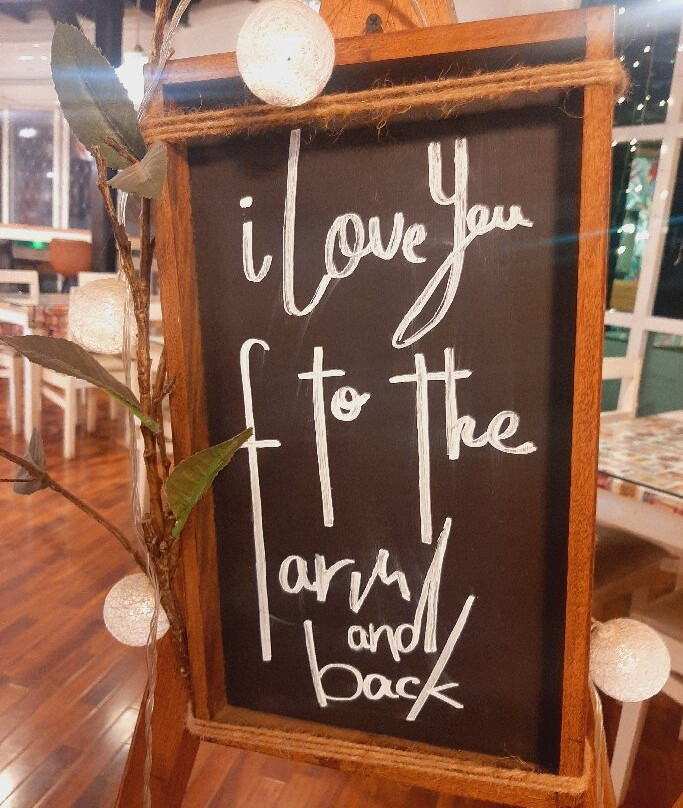 i love you
to the
farm
and
back